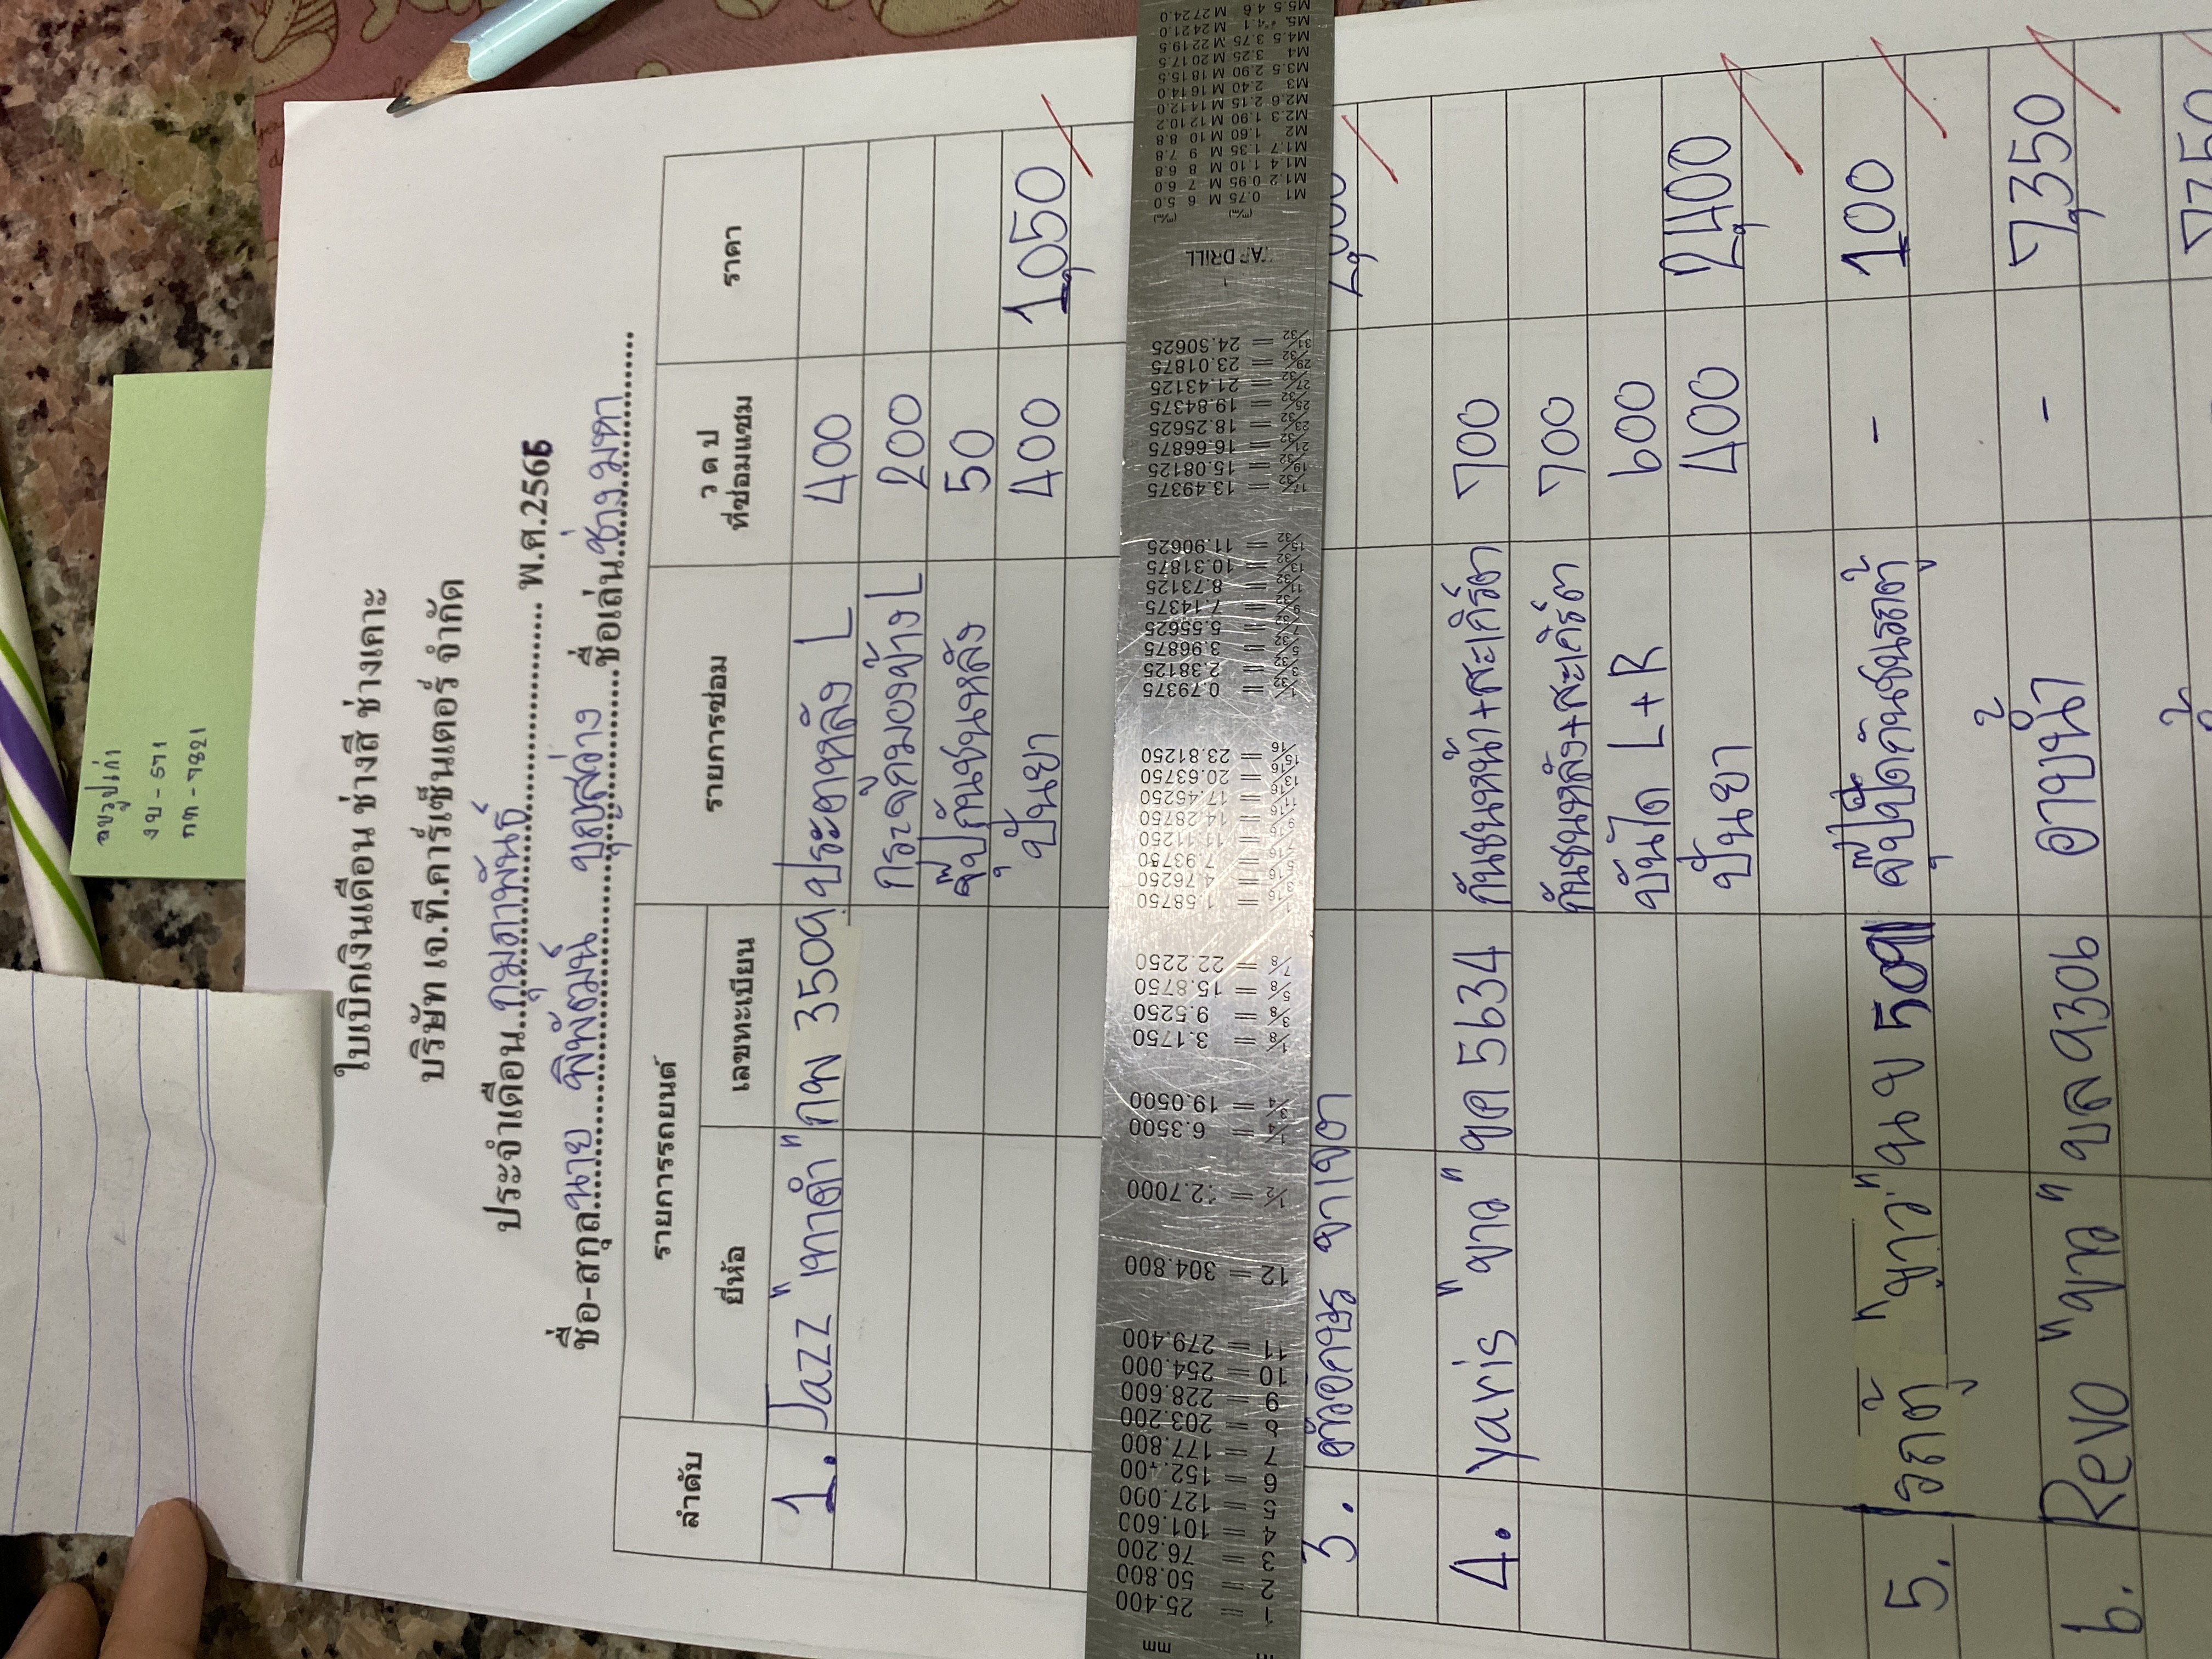 ใบเบิกเงินเดือน ช่างสี ช่างเคาะ
บริษัท เจ.ที.คาร์เซ็นเตอร์ จำกัด
ประจำเดือน กุมภาพันธ์ พ.ศ.2566
ชื่อ-สกุล นาย พิพัฒน์ บุญสว่าง ชื่อเล่น ช่างมหา
ลำดับ รายการรถยนต์ รายการซ่อม ว ด ป ที่ซ่อมแซม ราคา
ยี่ห้อ เลขทะเบียน
1. Jazz "เทาดำ" กพ 3509 ประตูหลัง L 400
กระจกมองข้าง L 200
จุ๊ปกันชนหลัง 50
ปั้นยา 400 1,050
3. ขาเขตา
4. yaris "ขาว" ขต 5634 กันชนหน้า+สะเกิร์ตา 700
กันชนหลัง+สะเกิร์ตา 700
บันได L+R 600
ปั้นยา 400 2,400
5. รถตู้ "ขาว" นข กันชนรถตู้ - 100
6. Revo "ขาว" บล 9306 อาบน้ำ - 7,350
7,750
งบ - 571
กท - 7821
mm
1 = 25.400
2 = 50.800
3 = 76.200
4 = 101.600
5 = 127.000
6 = 152.400
7 = 177.800
8 = 203.200
9 = 228.600
10 = 254.000
11 = 279.400
12 = 304.800
1/2 = 12.7000
1/4 = 6.3500
3/4 = 19.0500
1/8 = 3.1750
3/8 = 9.5250
5/8 = 15.8750
7/8 = 22.2250
1/16 = 1.58750
3/16 = 4.76250
5/16 = 7.93750
7/16 = 11.11250
9/16 = 14.28750
11/16 = 17.46250
13/16 = 20.63750
15/16 = 23.81250
1/32 = 0.79375
3/32 = 2.38125
5/32 = 3.96875
7/32 = 5.55625
9/32 = 7.14375
11/32 = 8.73125
13/32 = 10.31875
15/32 = 11.90625
17/32 = 13.49375
19/32 = 15.08125
21/32 = 16.66875
23/32 = 18.25625
25/32 = 19.84375
27/32 = 21.43125
29/32 = 23.01875
31/32 = 24.50625
TAP DRILL
M1 0.75 M 6 5.0
M1.2 0.95 M 7 6.0
M1.4 1.10 M 8 6.8
M1.7 1.35 M 9 7.8
M2 1.60 M 10 8.8
M2.3 1.90 M 12 10.2
M2.6 2.15 M 14 12.0
M3 2.40 M 16 14.0
M3.5 2.90 M 18 15.5
M4 3.25 M 20 17.5
M4.5 3.75 M 22 19.5